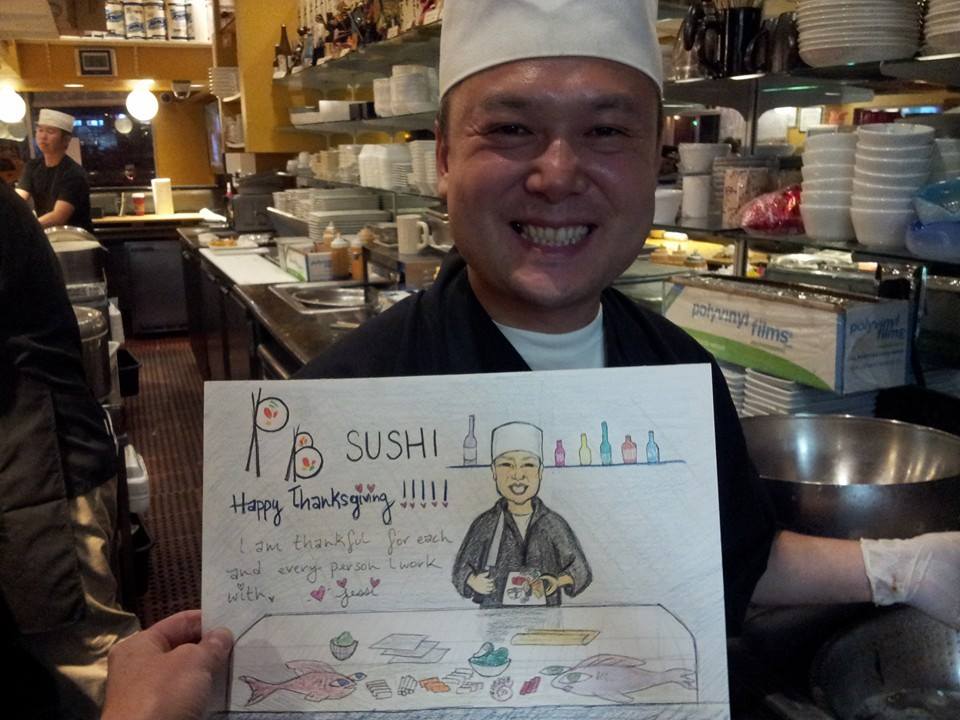 PB SUSHI
Happy Thanksgiving !!!!!
I am thankful for each
and every person I work
with. Jessi
polyvinyl films
polyvinyl films